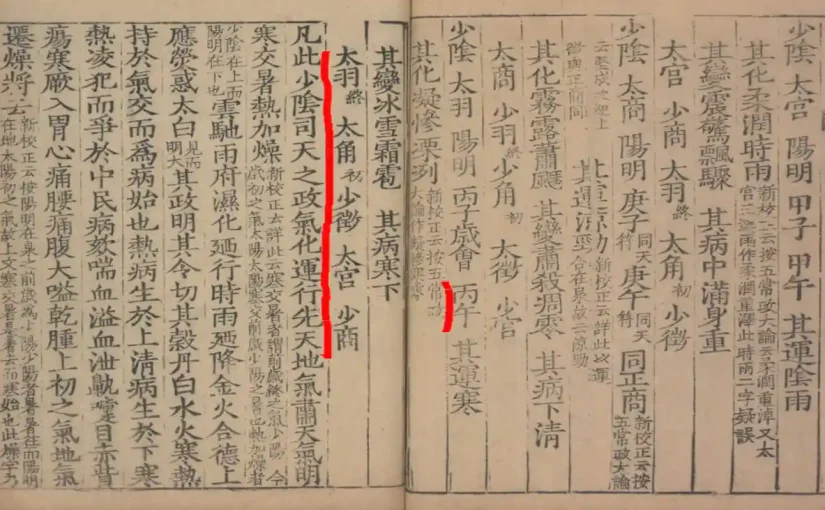 少陰 太宮 陽明 甲子 甲午 其運陰雨
其化柔潤時雨 新校正云按五常政大論云柔潤重淖又太宮三運兩作柔潤重澤此時雨二字疑誤
其變震驚飄驟 其病中滿身重
太宮 少商 太羽終 太角初 少徵
少陰 太商 陽明 庚子同天符 庚午同天符 同正商 新校正云按五常政大論
云堅成之紀上徵與正商同 其運涼勁 新校正云詳此以運合在泉故云涼勁
其化霧露蕭飋 其變肅殺凋零 其病下清
太商 少羽終 少角初 太徵 少宮
少陰 太羽 陽明 丙子歲會 丙午 其運寒
其化凝慘凓冽 新校正云按五常政大論作凝慘寒雰
其變冰雪霜雹 其病寒下
太羽終 太角初 少徵 太宮 少商
凡此少陰司天之政氣化運行先天地氣肅天氣明
寒交暑熱加燥 新校正云詳此云寒交暑者謂前歲終之氣少陽今歲初之氣太陽太陽寒交前歲少陽之暑也熱加燥者
少陰在上而陽明在下也 雲馳雨府濕化廼行時雨廼降金火合德上
應熒惑太白見而明大 其政明其令切其穀丹白水火寒熱
持於氣交而爲病始也熱病生於上清病生於下寒
熱凌犯而爭於中民病欬喘血溢血泄鼽嚏目赤眥
瘍寒厥入胃心痛腰痛腹大嗌乾腫上初之氣地氣
遷燥將去 新校正云按陽明在泉之前歲爲少陽少陽者暑暑往而陽明在地太陽初之氣故上文寒交暑是暑去而寒始也此燥字乃